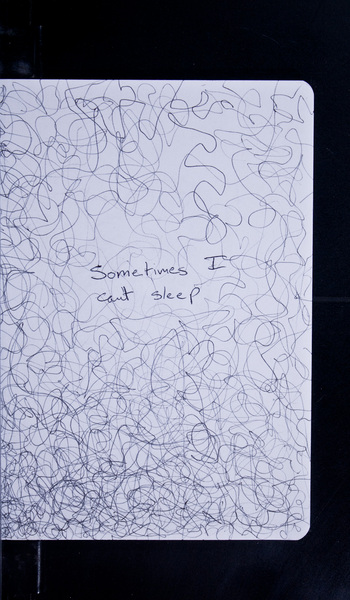 Sometimes I
can't sleep